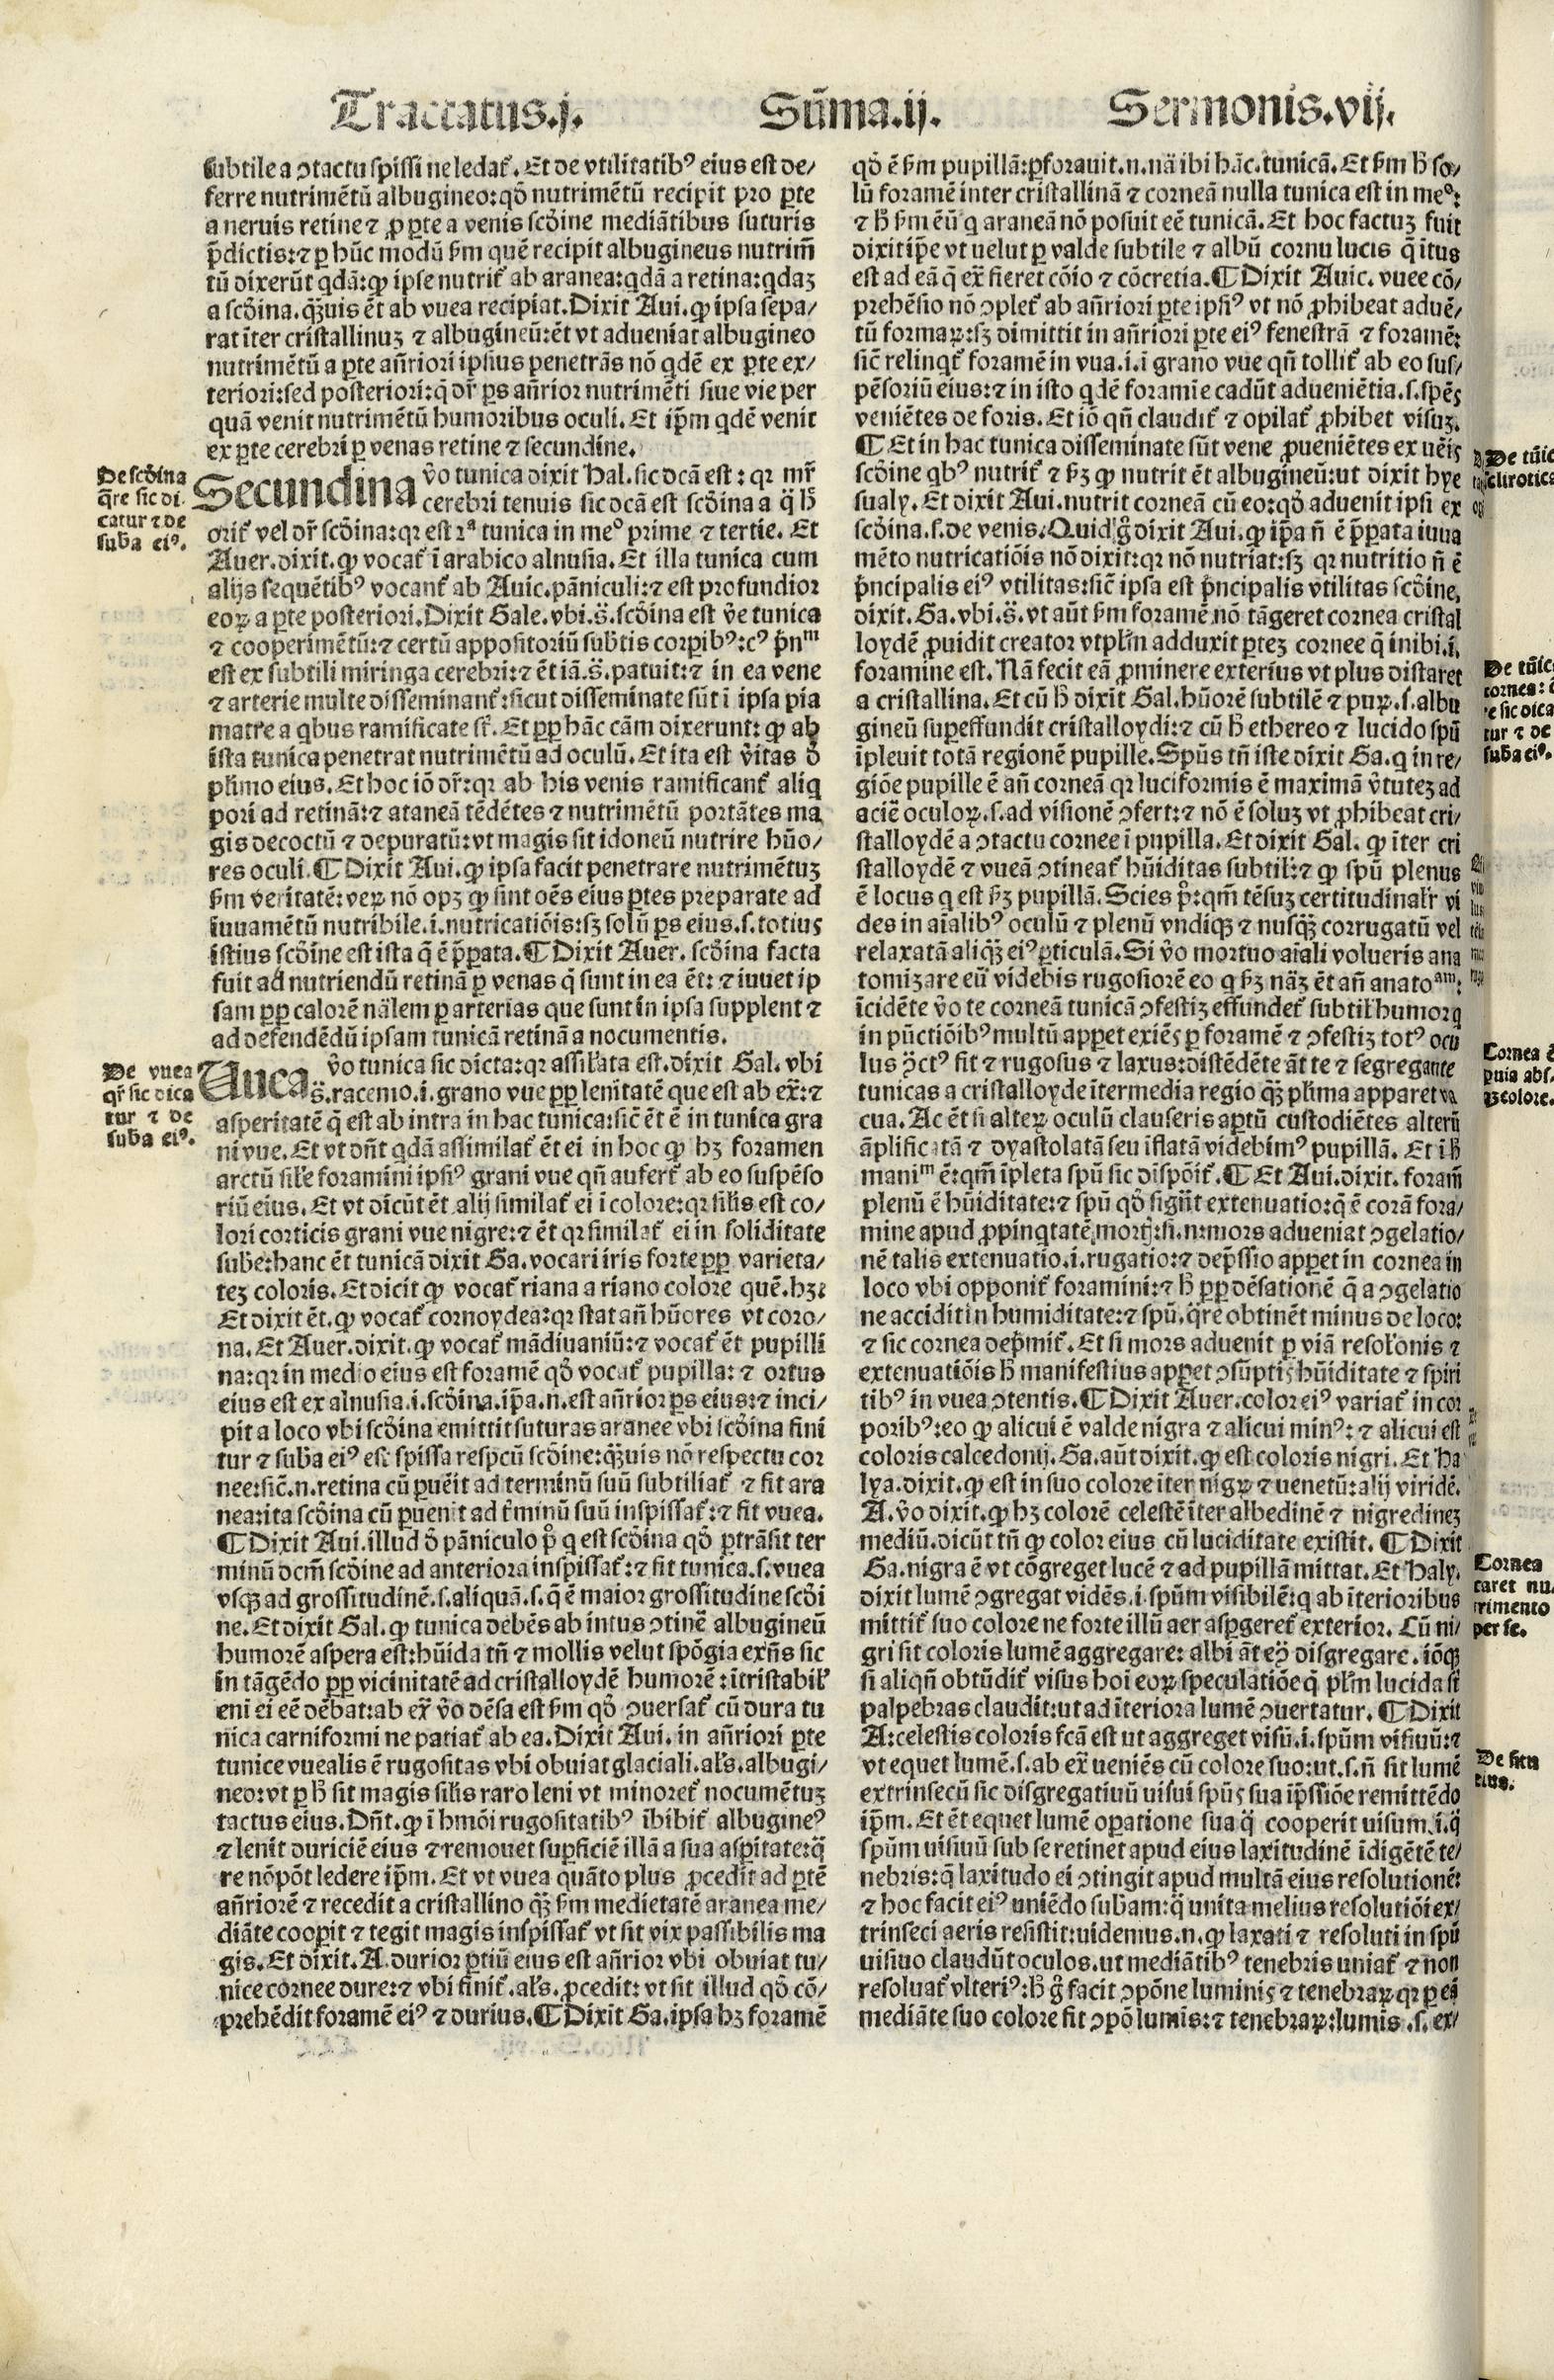 Tractatus.j. Sūma.ij. Sermonis.vij.
subtile a ꝯtactu spissi ne ledat᷑. Et de vtilitatibꝰ eius est de/
ferre nutrimētū albugineo: qđ nutrimētū recipit pro ꝑte
a neruis retine ⁊ ꝓ ꝑte a venis scđine mediātibus suturis
p̄dictis: ⁊ ꝑ hūc modū ẜm quē recipit albugineus nutrim̄
tū dixerūt qdā: ꝙ ipse nutrit᷑ ab aranea: qdā a retina: qdaꝫ
a scđina. qꝫuis ēt ab vuea recipiat. Dixit Aui. ꝙ ipsa sepa/
rat īter cristallinuꝫ ⁊ albugineū: ēt vt adueniat albugineo
nutrimētū a ꝑte an̄riori ipsius penetrās nō qdē ex ꝑte ex/
teriori: sed posteriori: q̄ dr̄ ꝑs an̄rior nutrimēti siue vie per
quā venit nutrimētū humoribus oculi. Et ip̄m qdē venit
ex ꝑte cerebri ꝑ venas retine ⁊ secundine.
De scđina
q̄re sic di
catur ⁊ de
suba eiꝰ.
Secundina v̄o tunica dixit Hal. sic dcā est: qꝛ mr̄
cerebri tenuis sic dcā est scđina a q̈ h̄
orit᷑ vel dr̄ scđina: qꝛ est 2ᵃ tunica in meº prime ⁊ tertie. Et
Auer. dixit. ꝙ vocat᷑ ī arabico alnusia. Et illa tunica cum
alijs sequētibꝰ vocant᷑ ab Auic. pāniculi: ⁊ est profundior
eoꝝ a ꝑte posteriori. Dixit Gale. vbi. s̈. scđina est v̄e tunica
⁊ cooperimētū: ⁊ certū appositoriū subtis corꝑibꝰ: cꝰ p̄nᵐ
est ex subtili miringa cerebri: ⁊ ēt iā. s̈. patuit: ⁊ in ea vene
⁊ arterie multe disseminant᷑: sicut disseminate sūt ī ipsa pia
matre a qbus ramificate st᷑. Et ꝓꝑ hāc cām dixerunt: ꝙ ab
ista tunica penetrat nutrimētū ad oculū. Et ita est v̄itas đ
plīmo eius. Et hoc iō dr̄: qꝛ ab his venis ramificant᷑ aliq
pori ad retinā: ⁊ ataneā tēdētes ⁊ nutrimētū portātes ma
gis decoctū ⁊ depuratū: vt magis sit idoneū nutrire hūo/
res oculi. ¶ Dixit Aui. ꝙ ipsa facit penetrare nutrimētuꝫ
ẜm veritatē: veꝝ nō opꝫ ꝙ sint oēs eius ꝑtes preparate ad
iuuamētū nutribile. i. nutricatiōis: sꝫ solū ꝑs eius. s. totiuꝰ
istius scđine est ista q̄ ē p̄pata. ¶ Dixit Auer. scđina facta
fuit ad nutriendū retinā ꝑ venas q̄ sunt in ea ēt: ⁊ iuuet ip
sam ꝓꝑ calorē nālem ꝑ arterias que sunt in ipsa supplent ⁊
ad defendēdū ipsam tunicā retinā a nocumentis.
De vuea
qr̄ sic dica
tur ⁊ de
suba eiꝰ.
Uuea v̄o tunica sic dicta: qꝛ assil̄ata est. dixit Gal. vbi
s̈. racemo. i. grano vue ꝓꝑ lenitatē que est ab ex̄: ⁊
asperitatē q̄ est ab intra in hac tunica: sic̄ ēt ē in tunica gra
ni vue. Et vt dn̄t qdā assimilat᷑ ēt ei in hoc ꝙ hꝫ foramen
arctū sil̄e foramini ipsiꝰ grani vue qn̄ aufert᷑ ab eo suspēso
riū eius. Et vt dicūt ēt alij similat᷑ ei ī colore: qꝛ sil̄is est co/
lori corticis grani vue nigre: ⁊ ēt qꝛ similat᷑ ei in soliditate
sube: hanc ēt tunicā dixit Ga. vocari iris forte ꝓꝑ varieta/
teꝫ coloris. Et dicit ꝙ vocat᷑ riana a riano colore quē. hꝫ:
Et dixit ēt. ꝙ vocat᷑ cornoydea: qꝛ stat an̄ hūores vt coro/
na. Et Auer. dixit. ꝙ vocat᷑ mādiuaniū: ⁊ vocat᷑ ēt pupilli
na: qꝛ in medio eius est foramē qđ vocat᷑ pupilla: ⁊ ortus
eius est ex alnusia. i. scđina. ip̄a. n. est an̄rior ꝑs eius: ⁊ inci/
pit a loco vbi scđina emittit suturas aranee vbi scđina fini
tur ⁊ suba eiꝰ est spissa respcū scđine: qꝫuis nō respectu cor
nee: sic̄. n. retina cū ꝑuēit ad terminū suū subtiliat᷑ ⁊ fit ara
nea: ita scđina cū ꝑuenit ad t̄minū suū inspissat᷑: ⁊ fit vuea.
¶ Dixit Aui. illud đ pāniculo p̄ q est scđina qđ ꝑtrāsit ter
minū dcm̄ scđine ad anteriora inspissat᷑: ⁊ fit tunica. s. vuea
vsqꝫ ad grossitudinē. s. aliquā. s. q̄ ē maior grossitudine scđi
ne. Et dixit Gal. ꝙ tunica debēs ab intus ꝯtinē albugineū
humorē aspera est: hūida tn̄ ⁊ mollis velut spōgia exn̄s sic
in tāgēdo ꝓꝑ vicinitatē ad cristalloydē humorē: ītristabil̄
eni ei eē debat: ab ex̄ v̄o dēsa est ẜm qđ ꝯuersat᷑ cū dura tu
nica carniformi ne patiat᷑ ab ea. Dixit Aui. in an̄riori ꝑte
tunice vuealis ē rugositas vbi obuiat glaciali. al̄s. albugi/
neo: vt ꝑ h̄ sit magis sil̄is raro leni vt minoret᷑ nocumētuꝫ
tactus eius. Dn̄t. ꝙ ī hmōi rugositatibꝰ ībibit᷑ albugineꝰ
⁊ lenit duriciē eius ⁊ remouet suꝑficiē illā a sua asꝑitate: q̈
re nō pōt ledere ip̄m. Et vt vuea quāto plus ꝓcedit ad ꝑtē
an̄riorē ⁊ recedit a cristallino qꝫ ẜm medietatē aranea me/
diāte cooꝑit ⁊ tegit magis inspissat᷑ vt sit vix passibilis ma
gis. Et dixit. A. durior ꝑtiū eius est an̄rior vbi obuiat tu/
nice cornee dure: ⁊ vbi finit᷑. al̄s. ꝓcedit: vt sit illud qđ cō/
prehēdit foramē eiꝰ ⁊ durius. ¶ Dixit Ga. ipsa hꝫ foramē
qđ ē ẜm pupillā: ꝑforauit. n. nā ibi hāc. tunicā. Et ẜm h̄ so/
lū foramē inter cristallinā ⁊ corneā nulla tunica est in meº:
⁊ h̄ ẜm eū q araneā nō posuit eē tunicā. Et hoc factuꝫ fuit
dixit ip̄e vt uelut ꝑ valde subtile ⁊ albū cornu lucis q̄ ītus
est ad eā q̄ ex̄ fieret cōio ⁊ cōcretia. ¶ Dixit Auic. vuee cō/
prehēsio nō ꝯplet᷑ ab an̄riori ꝑte ipsiꝰ vt nō ꝓhibeat aduē/
tū formaꝝ: sꝫ dimittit in an̄riori ꝑte eiꝰ fenestrā ⁊ foramē:
sic̄ relinqt᷑ foramē in vua. i. ī grano vue qn̄ tollit᷑ ab eo sus/
pēsoriū eius: ⁊ in isto qdē foramīe cadūt adueniētia. s. spēs
veniētes de foris. Et iō qn̄ claudit᷑ ⁊ opilat᷑ ꝓhibet visuꝫ.
¶ Et in hac tunica disseminate sūt vene ꝓueniētes ex uēis
scđine qbꝰ nutrit᷑ ⁊ ẜꝫ ꝙ nutrit ēt albugineū: ut dixit hye
sualy. Et dixit Aui. nutrit corneā cū eo: qđ aduenit ipsi ex
scđina. s. de venis. Quid g̊ dixit Aui. ꝙ ip̄a n̄ ē p̄pata iuua
mēto nutricatiōis nō dixit: qꝛ nō nutriat: sꝫ qꝛ nutritio n̄ ē
p̄ncipalis eiꝰ vtilitas: sic̄ ipsa est p̄ncipalis vtilitas scđine,
dixit. Ga. vbi. s̈. vt aūt ẜm foramē nō tāgeret cornea cristal
loydē ꝓuidit creator vtpl̄m adduxit ꝑteꝫ cornee q̄ inibi. i.
foramine est. Nā fecit eā ꝓminere exterius vt plus distaret
a cristallina. Et cū h̄ dixit Gal. hūorē subtilē ⁊ puꝝ. s. albu
gineū suꝑeffundit cristalloydi: ⁊ cū h̄ ethereo ⁊ lucido spū
īpleuit totā regionē pupille. Spūs tn̄ iste dixit Ga. q in re/
giōe pupille ē an̄ corneā qꝛ luciformis ē maximā v̄tuteꝫ ad
aciē oculoꝝ. s. ad visionē ꝯfert: ⁊ nō ē soluꝫ vt ꝓhibeat cri/
stalloydē a ꝯtactu cornee ī pupilla. Et dixit Gal. ꝙ īter cri
stalloydē ⁊ vueā ꝯtineat᷑ hūiditas subtil̄: ⁊ ꝙ spū plenus
ē locus q est ẜꝫ pupillā. Scies p̊: qm̄ tēsuꝫ certitudinal̄r vi
des in aīalibꝰ oculū ⁊ plenū vndiqꝫ ⁊ nusqꝫ corrugatū vel
relaxatā aliqꝫ eiꝰ ꝑticulā. Si v̄o mortuo aīali volueris ana
tomizare eū videbis rugosiorē eo q ẜꝫ nāꝫ ēt an̄ anatoᵃᵐ:
īcidēte v̄o te corneā tunicā ꝯfestiꝫ effundet᷑ subtil̄ humorq
in pūctiōibꝰ multū apꝑet exiēs ꝑ foramē ⁊ ꝯfestiꝫ totꝰ ocu
lus ꝯ̈ctꝰ fit ⁊ rugosus ⁊ laxus: distēdēte āt te ⁊ segregante
tunicas a cristalloyde ītermedia regio qꝫ plīma apparet va
cua. Ac ēt si alteꝝ oculū clauseris aꝑtū custodiētes alterū
āplificatā ⁊ dyastolatā seu īflatā videbimꝰ pupillā. Et ī h̄
maniᵐ ē: qm̄ īpleta spū sic dispōit᷑. ¶ Et Aui. dixit. foram̄
plenū ē hūiditate: ⁊ spū qđ sign̄t extenuatio: q̄ ē corā fora/
mine apud ꝓpinqtatē mortꝭ: si. n. mors adueniat ꝯgelatio/
nē talis extenuatio. i. rugatio: ⁊ dep̄ssio apꝑet in cornea in
loco vbi opponit᷑ foramini: ⁊ h̄ ꝓꝑ dēsationē q̄ a ꝯgelatio
ne accidit in humiditate: ⁊ spū. q̈re obtinēt minus de loco:
⁊ sic cornea dep̄mit᷑. Et si mors aduenit ꝑ viā resol̄onis ⁊
extenuatiōis h̄ manifestius apꝑet ꝯsūptis hūiditate ⁊ spiri
tibꝰ in vuea ꝯtentis. ¶ Dixit Auer. color eiꝰ variat᷑ in cor
poribꝰ: eo ꝙ alicui ē valde nigra ⁊ alicui minꝰ: ⁊ alicui est
coloris calcedonij. Ga. aūt dixit. ꝙ est coloris nigri. Et Ha
lya. dixit. ꝙ est in suo colore īter nigꝝ ⁊ uenetū: alij viridē.
A. v̄o dixit. ꝙ hꝫ colorē celestē īter albedinē ⁊ nigredineꝫ
mediū. dicūt tn̄ ꝙ color eius cū luciditate existit. ¶ Dixit
Ga. nigra ē vt cōgreget lucē ⁊ ad pupillā mittat. Et Haly.
dixit lumē ꝯgregat vidēs. i. spūm visibilē: q ab īterioribus
mittit᷑ suo colore ne forte illū aer asꝑgeret᷑ exterior. Cū ni/
gri sit coloris lumē aggregare: albi āt eꝯ̈ disgregare. iōqꝫ
si aliqn̄ obtūdit᷑ visus hoi eoꝝ speculatiōe q̄ pl̄m lucida st᷑
palpebras claudit: ut ad īteriora lumē ꝯuertatur. ¶ Dixit
A: celestis coloris fcā est ut aggreget visū. i. spūm visiuū: ⁊
vt equet lumē. s. ab ex̄ ueniēs cū colore suo: ut. s. n̄ sit lumē
extrinsecū sic disgregatiuū uisui spūs sua īp̄ssiōe remittēdo
ip̄m. Et ēt equet lumē oꝑatione sua q̈ cooperit uisum. i. q̈
spūm uisiuū sub se retinet apud eius laxitudinē īdigētē te/
nebris: q̄ laxitudo ei ꝯtingit apud multā eius resolutionē:
⁊ hoc facit eiꝰ uniēdo subam: q̈ unita melius resolutiōi ex/
trinseci aeris resistit: uidemus. n. ꝙ laxati ⁊ resoluti in spū
uisiuo claudūt oculos. ut mediātibꝰ tenebris uniat᷑ ⁊ non
resoluat᷑ vlteriꝰ: h̄ g̊ facit ꝯpōne luminis ⁊ tenebraꝝ qꝛ ꝑ eā
mediāte suo colore fit ꝯpō lumīs: ⁊ tenebraꝝ: lumīs. s. ex/
De tūic
clirotica
De tūic
cornea:
suba eiꝰ.
Cornea ē
Cornea
caret nu
trimento
per se.
De situ
eius.